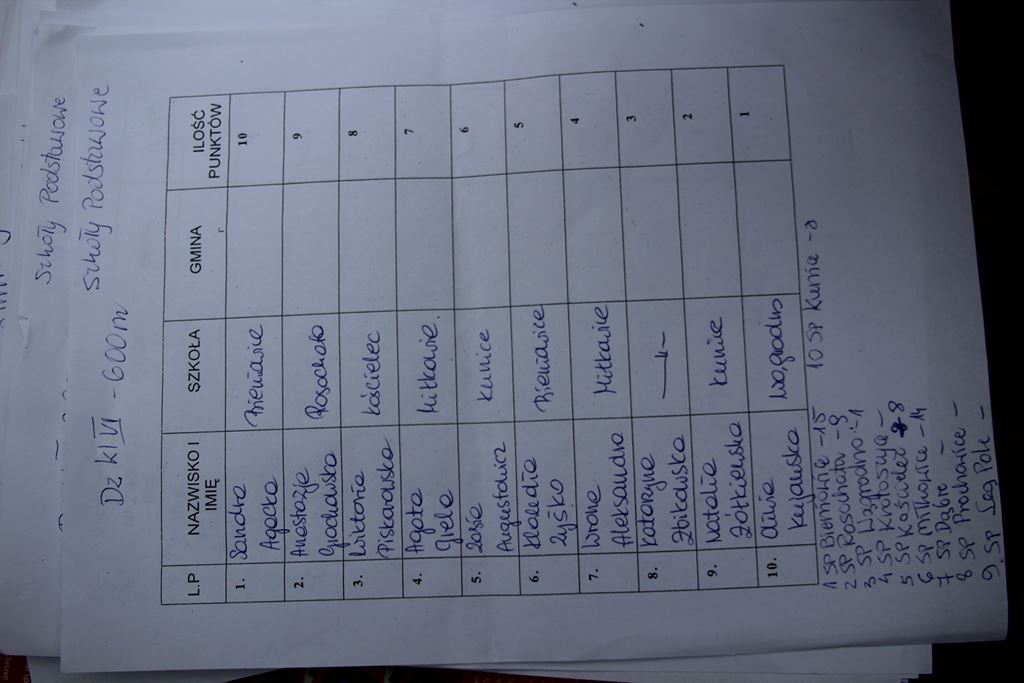 Szkoły Podstawowe
Dz kl VI - 600m Szkoły Podstawowe
L.P NAZWISKO I IMIĘ SZKOŁA GMINA ILOŚĆ PUNKTÓW
1. Sandra Agacka Bieniowice 10
2. Anastazja Rosochata 9
3. Wiktoria Piskarowska Kościelec 8
4. Agata Grela Miłkowice. 7
5. Zosia Augustowicz Kunice 6
6. Klaudia Zyśko Bieniowice 5
7. Wrona Aleksandra Miłkowice 4
8. Katarzyna Zbikowska —〃— 3
9. Natalia Żółkiewska Kunice 2
10. Oliwia Kujawska Jagrodno 1
1 SP Bieniowice -15
2 SP Rosochata -9
3 SP -1
4 SP Krotoszyce -
5 SP Kościelec 8
6 SP Miłkowice -14
7 SP -
8 SP Prochowice -
9. SP Leg. Pole -
10 SP Kunice -8